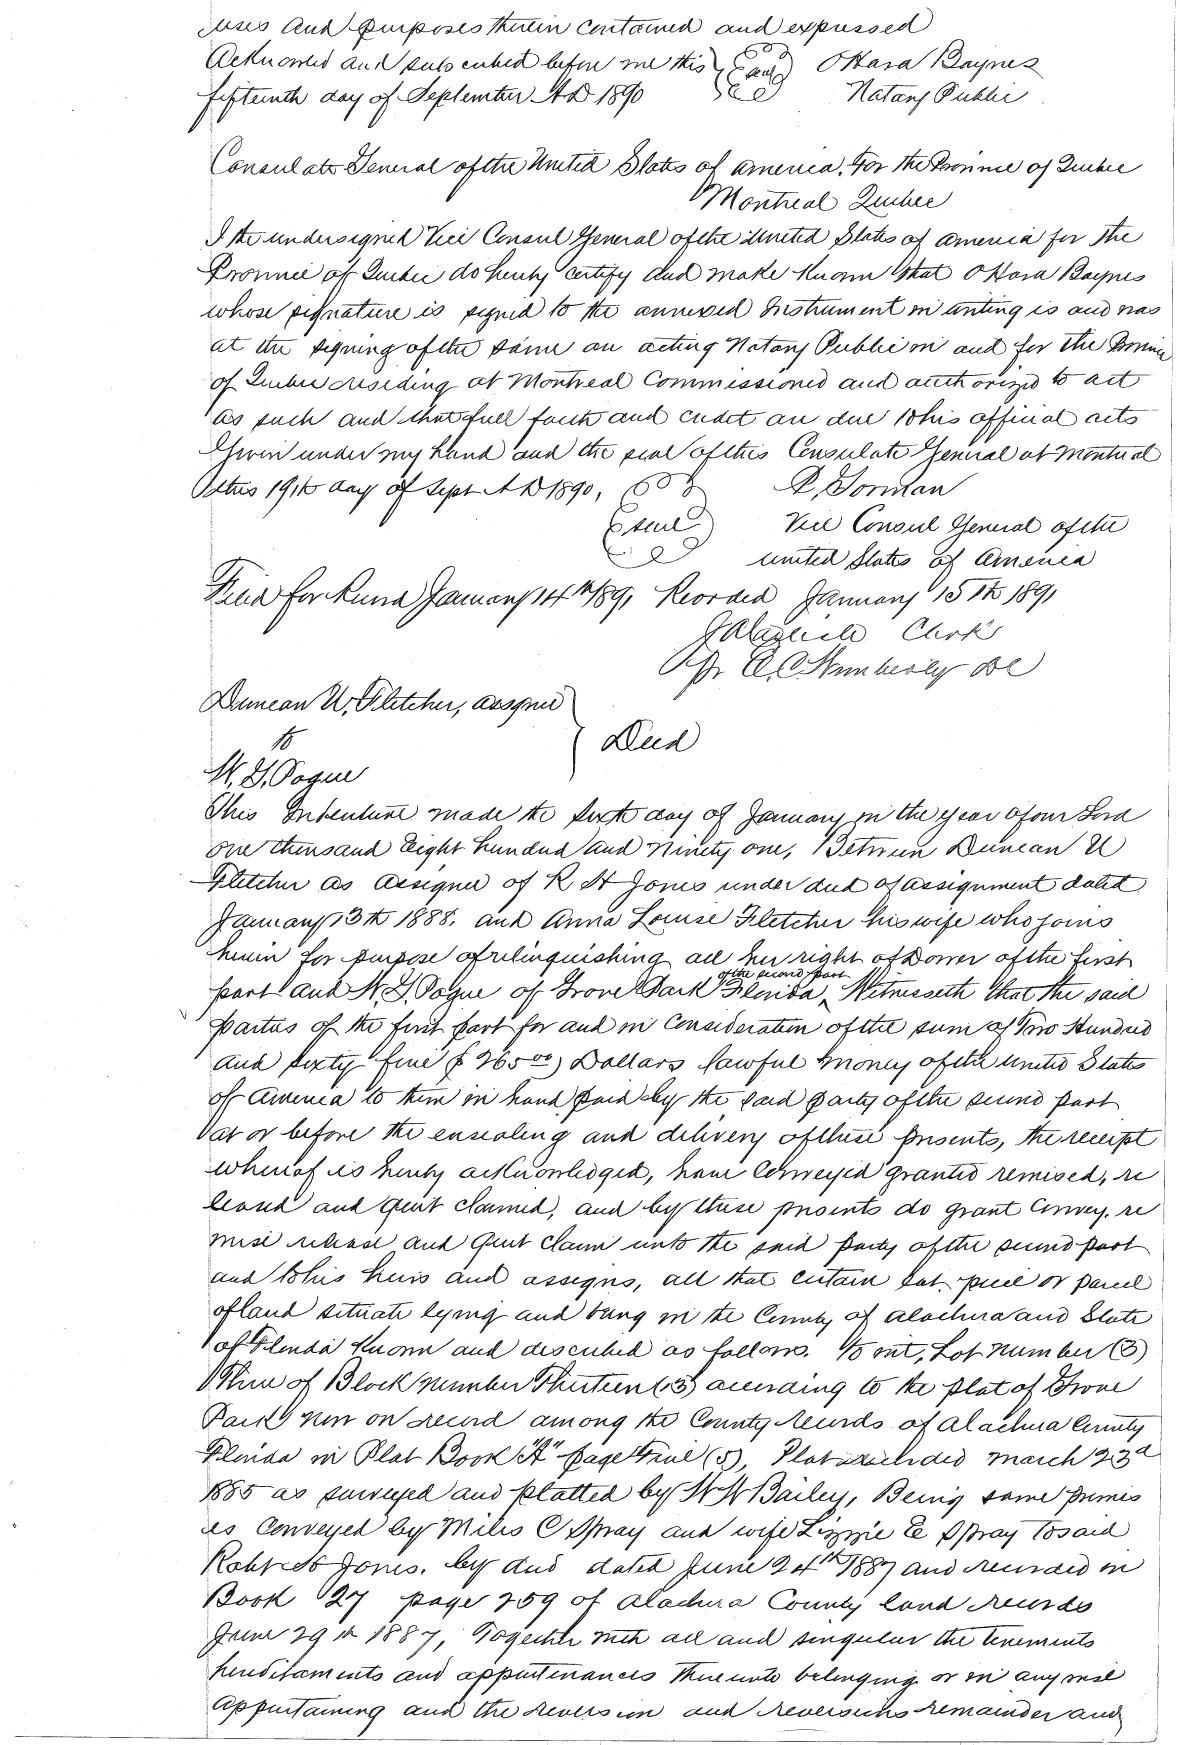 uses and purposes therein contained and expressed
Acknowled and subscribed before me this (Seal) O'Hara Baynes
fifteenth day of September AD 1890 Notary Public
Consulate General of the United States of America, For the Province of Quebec
Montreal Quebec
I the undersigned Vice Consul General of the United States of America for the
Province of Quebec do hereby certify and make known that O'Hara Baynes
whose signature is signed to the annexed Instrument in writing is and was
at the signing of the same an acting Notary Public in and for the Province
of Quebec residing at Montreal Commissioned and authorized to act
as such and that full faith and credit are due to his official acts
Given under my hand and the seal of this Consulate General at Montreal
this 19th day of Sept AD 1890, P. Gorman
(Seal) Vice Consul General of the
United States of America
Filed for Record January 14th 1891 Recorded January 15th 1891
Clerk
Pr C. C. Kimberly DC
Duncan U. Fletcher, assignee
to
Deed
W. G. Pogue
This Indenture made the sixth day of January in the year of our Lord
one thousand Eight hundred and ninety one, Between Duncan U
Fletcher as Assignee of R H Jones under deed of assignment dated
January 13th 1888. and Anna Louise Fletcher his wife who joins
herein for purpose of relinquishing all her right of Dower of the first
of the second part
part and W. G. Pogue of Grove Park Florida, Witnesseth that the said
parties of the first part for and in consideration of the sum of Two Hundred
and sixty five ($265 00) Dollars lawful money of the United States
of America to them in hand paid by the said party of the second part
at or before the ensealing and delivery of these presents, the receipt
whereof is hereby acknowledged, have Conveyed granted remised, re
leased and quit claimed, and by these presents do grant Convey, re
mise release and quit claim unto the said party of the second part
and to his heirs and assigns, all that certain lot, piece or parcel
of land situate lying and being in the County of Alachua and State
of Florida known and described as follows. To wit, Lot number (3)
Three of Block number Thirteen (13) according to the plat of Grove
Park now on record among the County records of Alachua County
Florida in Plat Book "A" page Five (5), Plat recorded March 23d
1885 as surveyed and platted by W W Bailey, Being same premis
es conveyed by Miles C Spray and wife Lizzie E Spray to said
Robt H Jones. by deed dated June 24th 1887 and recorded in
Book 27 page 259 of Alachua County land records
June 29th 1887, Together with all and singular the tenements
hereditaments and appurtenances thereunto belonging or in any wise
appertaining and the reversion and reversions remainder and